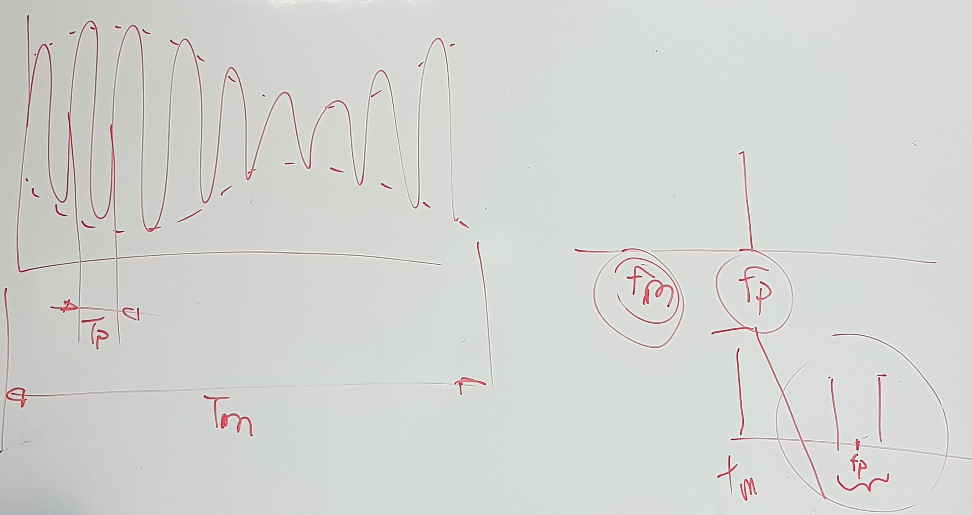 Tp
Tm
fm
fp
fp
fm